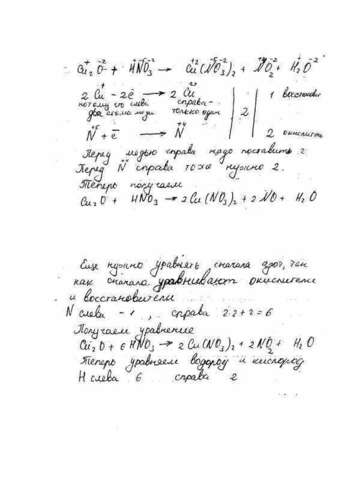 Cu₂O + HNO₃ → Cu(NO₃)₂ + NO₂ + H₂O
2 Cu − 2ē → 2 Cu | 2 | 1 восстанови
потому что слева справа-
два атома меди только один
N + ē → N 2 окислитель
Перед медью справа надо поставить 2
Перед N справа тоже нужно 2.
Теперь получаем
Cu₂O + HNO₃ → 2Cu(NO₃)₂ + 2NO + H₂O
Еще нужно уравнять сначала азот, так
как сначала уравнивают окислители
и восстановители
N слева - 1, справа 2·2+2=6
Получаем уравнение
Cu₂O + 6HNO₃ → 2Cu(NO₃)₂ + 2NO₂ + H₂O
Теперь уравняем водород и кислород
H слева 6 справа 2